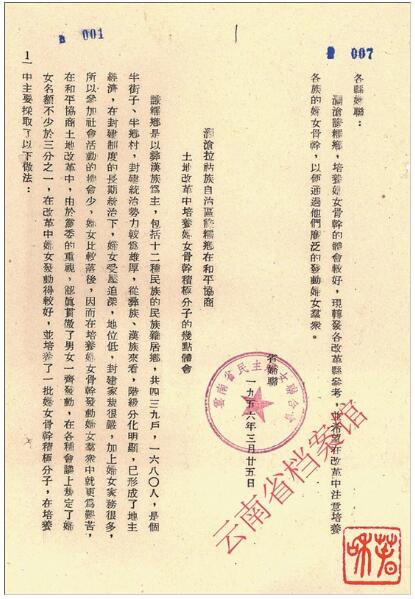 001
007
各縣婦聯：
瀾滄謙糯鄉，培養婦女骨幹的體會較好，現轉發各改革縣參考，並希望在改革中注意培養
各族的婦女骨幹，以便通過他們廣泛的發動婦女羣衆。
省婦聯
一九五六年三月廿五日
雲南省民主婦女聯合會
瀾滄拉祜族自治區謙糯鄉在和平協商
土地改革中培養婦女骨幹積極分子的幾點體會
謙糯鄉是以彝漢族爲主，包括十二種民族的民族雜居鄉，共四三九戶，一六八〇人，是個
半街子、半鄉村，封建統治勢力較爲雄厚，從彝族、漢族來看，階級分化明顯，已形成了地主
經濟，在封建制度的長期統治下，婦女受壓迫深，地位低，封建家規很嚴，加上婦女家務很多，
所以參加社會活動的機會少，婦女比較落後，因而在培養婦女骨幹發動婦女羣衆中就更爲艱苦，
在和平協商土地改革中，由於黨委的重視，認眞貫徹了男女一齊發動，在各種會議上規定了婦
女名額不少於三分之一，在改革中婦女發動得較好，並培養了一批婦女骨幹積極分子，在培養
1 中主要採取了以下做法：
云南省档案馆